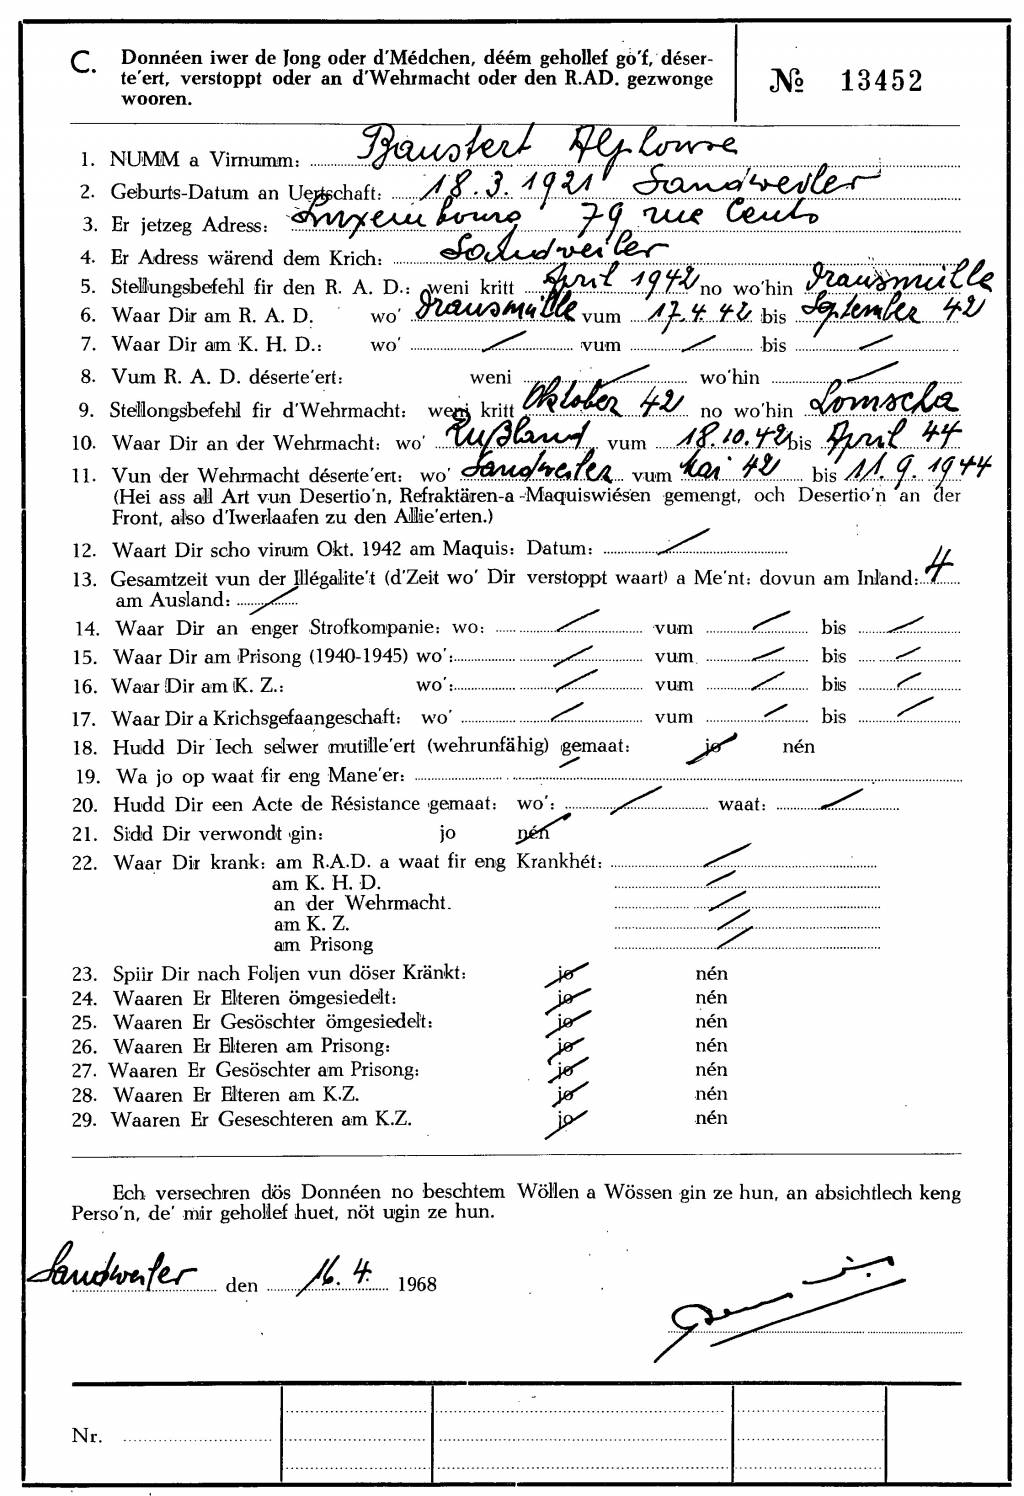 C. Donnéen iwer de Jong oder d'Médchen, déém gehollef gö'f, déser-
te'ert, verstoppt oder an d'Wehrmacht oder den R.AD. gezwonge
wooren.
№ 13452
1. NUMM a Virnumm: Baustert Alphonse
2. Geburts-Datum an Uertschaft: 18.3.1921 Sandweiler
3. Er jetzeg Adress: Luxembourg 79 rue Cents
4. Er Adress wärend dem Krich: Sandweiler
5. Stellungsbefehl fir den R. A. D.: weni kritt April 1942 no wo'hin Drausmühle
6. Waar Dir am R. A. D. wo' Drausmühle vum 17.4.42 bis September 42
7. Waar Dir am K. H. D.: wo' / vum / bis /
8. Vum R. A. D. déserte'ert: weni / wo'hin /
9. Stellongsbefehl fir d'Wehrmacht: weni kritt Oktober 42 no wo'hin Lomscha
10. Waar Dir an der Wehrmacht: wo' Rußland vum 18.10.42 bis April 44
11. Vun der Wehrmacht déserte'ert: wo' Sandweiler vum Mai 42 bis 11.9.1944
(Hei ass all Art vun Desertio'n, Refraktären-a-Maquiswiésen gemengt, och Desertio'n an der
Front, also d'Iwerlaafen zu den Allie'erten.)
12. Waart Dir scho virum Okt. 1942 am Maquis: Datum: /
13. Gesamtzeit vun der Illégalite't (d'Zeit wo' Dir verstoppt waart) a Me'nt: dovun am Inland: 4
am Ausland: /
14. Waar Dir an enger Strofkompanie: wo: / vum / bis /
15. Waar Dir am Prisong (1940-1945) wo': / vum / bis /
16. Waar Dir am K. Z.: wo': / vum / bis /
17. Waar Dir a Krichsgefaangeschaft: wo' / vum / bis /
18. Hudd Dir Iech selwer mutille'ert (wehrunfähig) gemaat: jo nén
19. Wa jo op waat fir eng Mane'er: /
20. Hudd Dir een Acte de Résistance gemaat: wo': / waat: /
21. Sidd Dir verwondt gin: jo nén
22. Waar Dir krank: am R.A.D. a waat fir eng Krankhét: /
am K. H. D. /
an der Wehrmacht. /
am K. Z. /
am Prisong /
23. Spiir Dir nach Foljen vun döser Kränkt: jo nén
24. Waaren Er Elteren ömgesiedelt: jo nén
25. Waaren Er Gesöschter ömgesiedelt: jo nén
26. Waaren Er Elteren am Prisong: jo nén
27. Waaren Er Gesöschter am Prisong: jo nén
28. Waaren Er Elteren am K.Z. jo nén
29. Waaren Er Geseschteren am K.Z. jo nén
Ech versechren dös Donnéen no beschtem Wöllen a Wössen gin ze hun, an absichtlech keng
Perso'n, de' mir gehollef huet, nöt ugin ze hun.
Sandweiler den 16. 4. 1968
Nr.